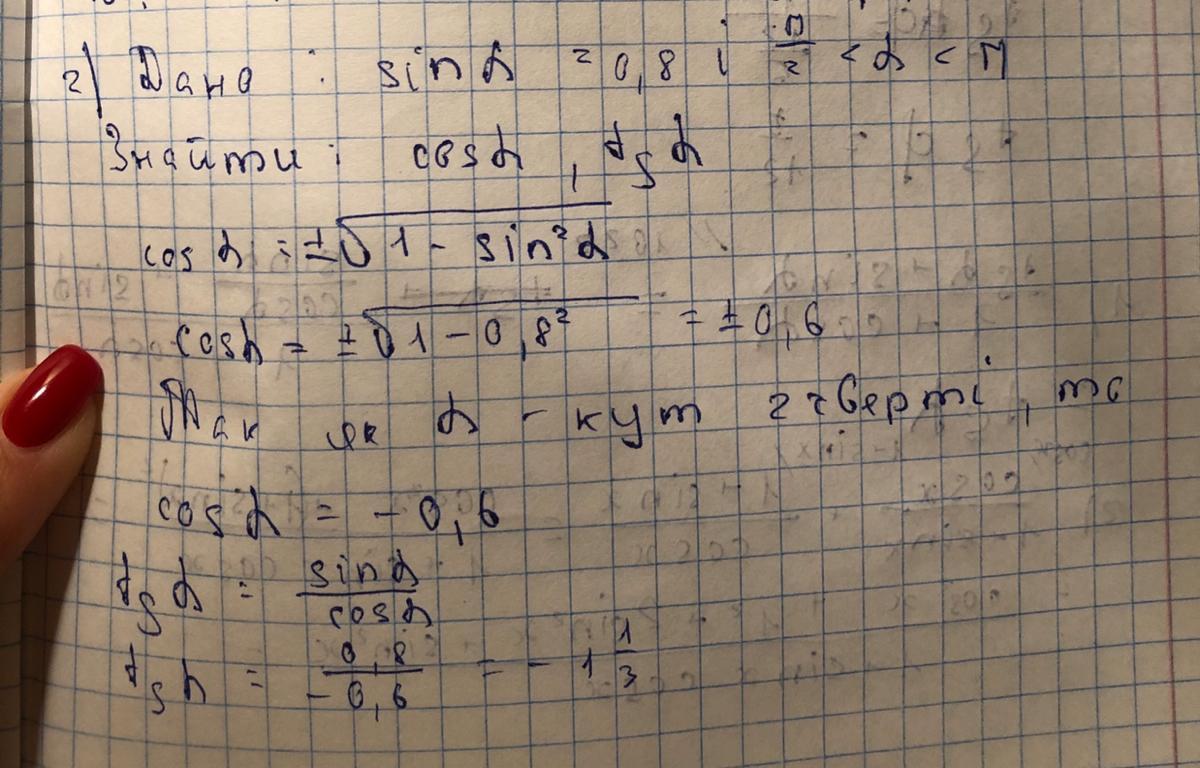 2) Дано : sin α = 0,8 і π/2 < α < π
Знайти : cos α , tg α
cos α = ±√1 - sin²α
cos α = ±√1 - 0,8² = ±0,6
Так як α - кут 2 чверті, то
cos α = - 0,6
tg α = sin α / cos α
tg α = 0,8 / -0,6 = - 1 1/3